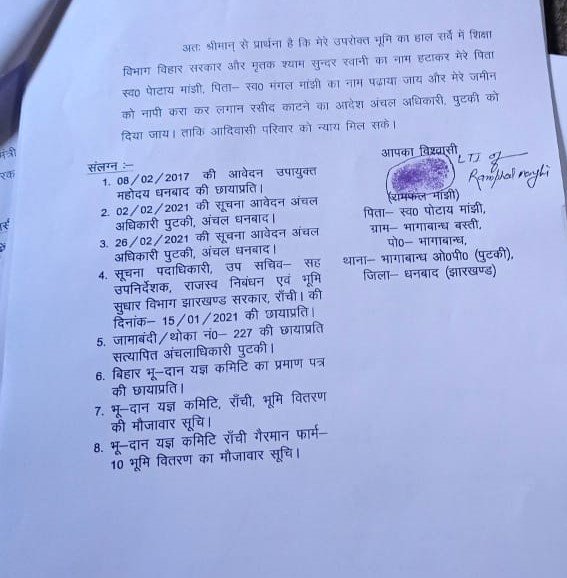 अतः श्रीमान् से प्रार्थना है कि मेरे उपरोक्त भूमि का हाल सर्वे में शिक्षा
विभाग बिहार सरकार और मृतक श्याम सुन्दर स्वानी का नाम हटाकर मेरे पिता
स्व0 पोटाय मांझी, पिता– स्व0 मंगल मांझी का नाम पढाया जाय और मेरे जमीन
को नापी करा कर लगान रसीद काटने का आदेश अंचल अधिकारी, पुटकी को
दिया जाय। ताकि आदिवासी परिवार को न्याय मिल सके।
संलग्न :–
1. 08/02/2017 की आवेदन उपायुक्त
महोदय धनबाद की छायाप्रति।
2. 02/02/2021 की सूचना आवेदन अंचल
अधिकारी पुटकी, अंचल धनबाद।
3. 26/02/2021 की सूचना आवेदन अंचल
अधिकारी पुटकी, अंचल धनबाद।
4. सूचना पदाधिकारी, उप सचिव– सह
उपनिर्देशक, राजस्व निबंधन एवं भूमि
सुधार विभाग झारखण्ड सरकार, राँची। की
दिनांक– 15/01/2021 की छायाप्रति।
5. जामाबंदी/थोका नं0– 227 की छायाप्रति
सत्यापित अंचलाधिकारी पुटकी।
6. बिहार भू–दान यज्ञ कमिटि का प्रमाण पत्र
की छायाप्रति।
7. भू–दान यज्ञ कमिटि, राँची, भूमि वितरण
की मौजावार सूचि।
8. भू–दान यज्ञ कमिटि राँची गैरमान फार्म–
10 भूमि वितरण का मौजावार सूचि।
आपका विश्वासी
LTI of
Ramphal
(रामफल मांझी)
पिता– स्व0 पोटाय मांझी,
ग्राम– भागाबान्ध बस्ती,
पो0– भागाबान्ध,
थाना– भागाबान्ध ओ0पी0 (पुटकी),
जिला– धनबाद (झारखण्ड)